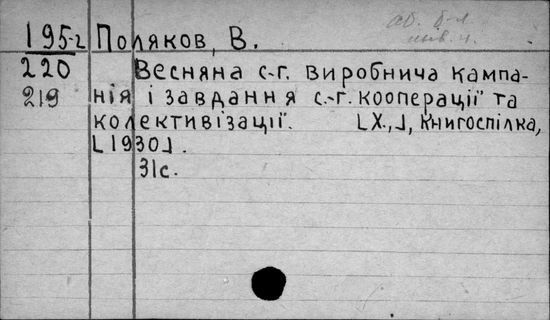 195-2 Поляков, В.
220 Весняна с-г. виробнича кампа-
219 нія і завдання с.-г. кооперації та
колективізації. [Х.,], Книгоспілка,
[1930].
31с.